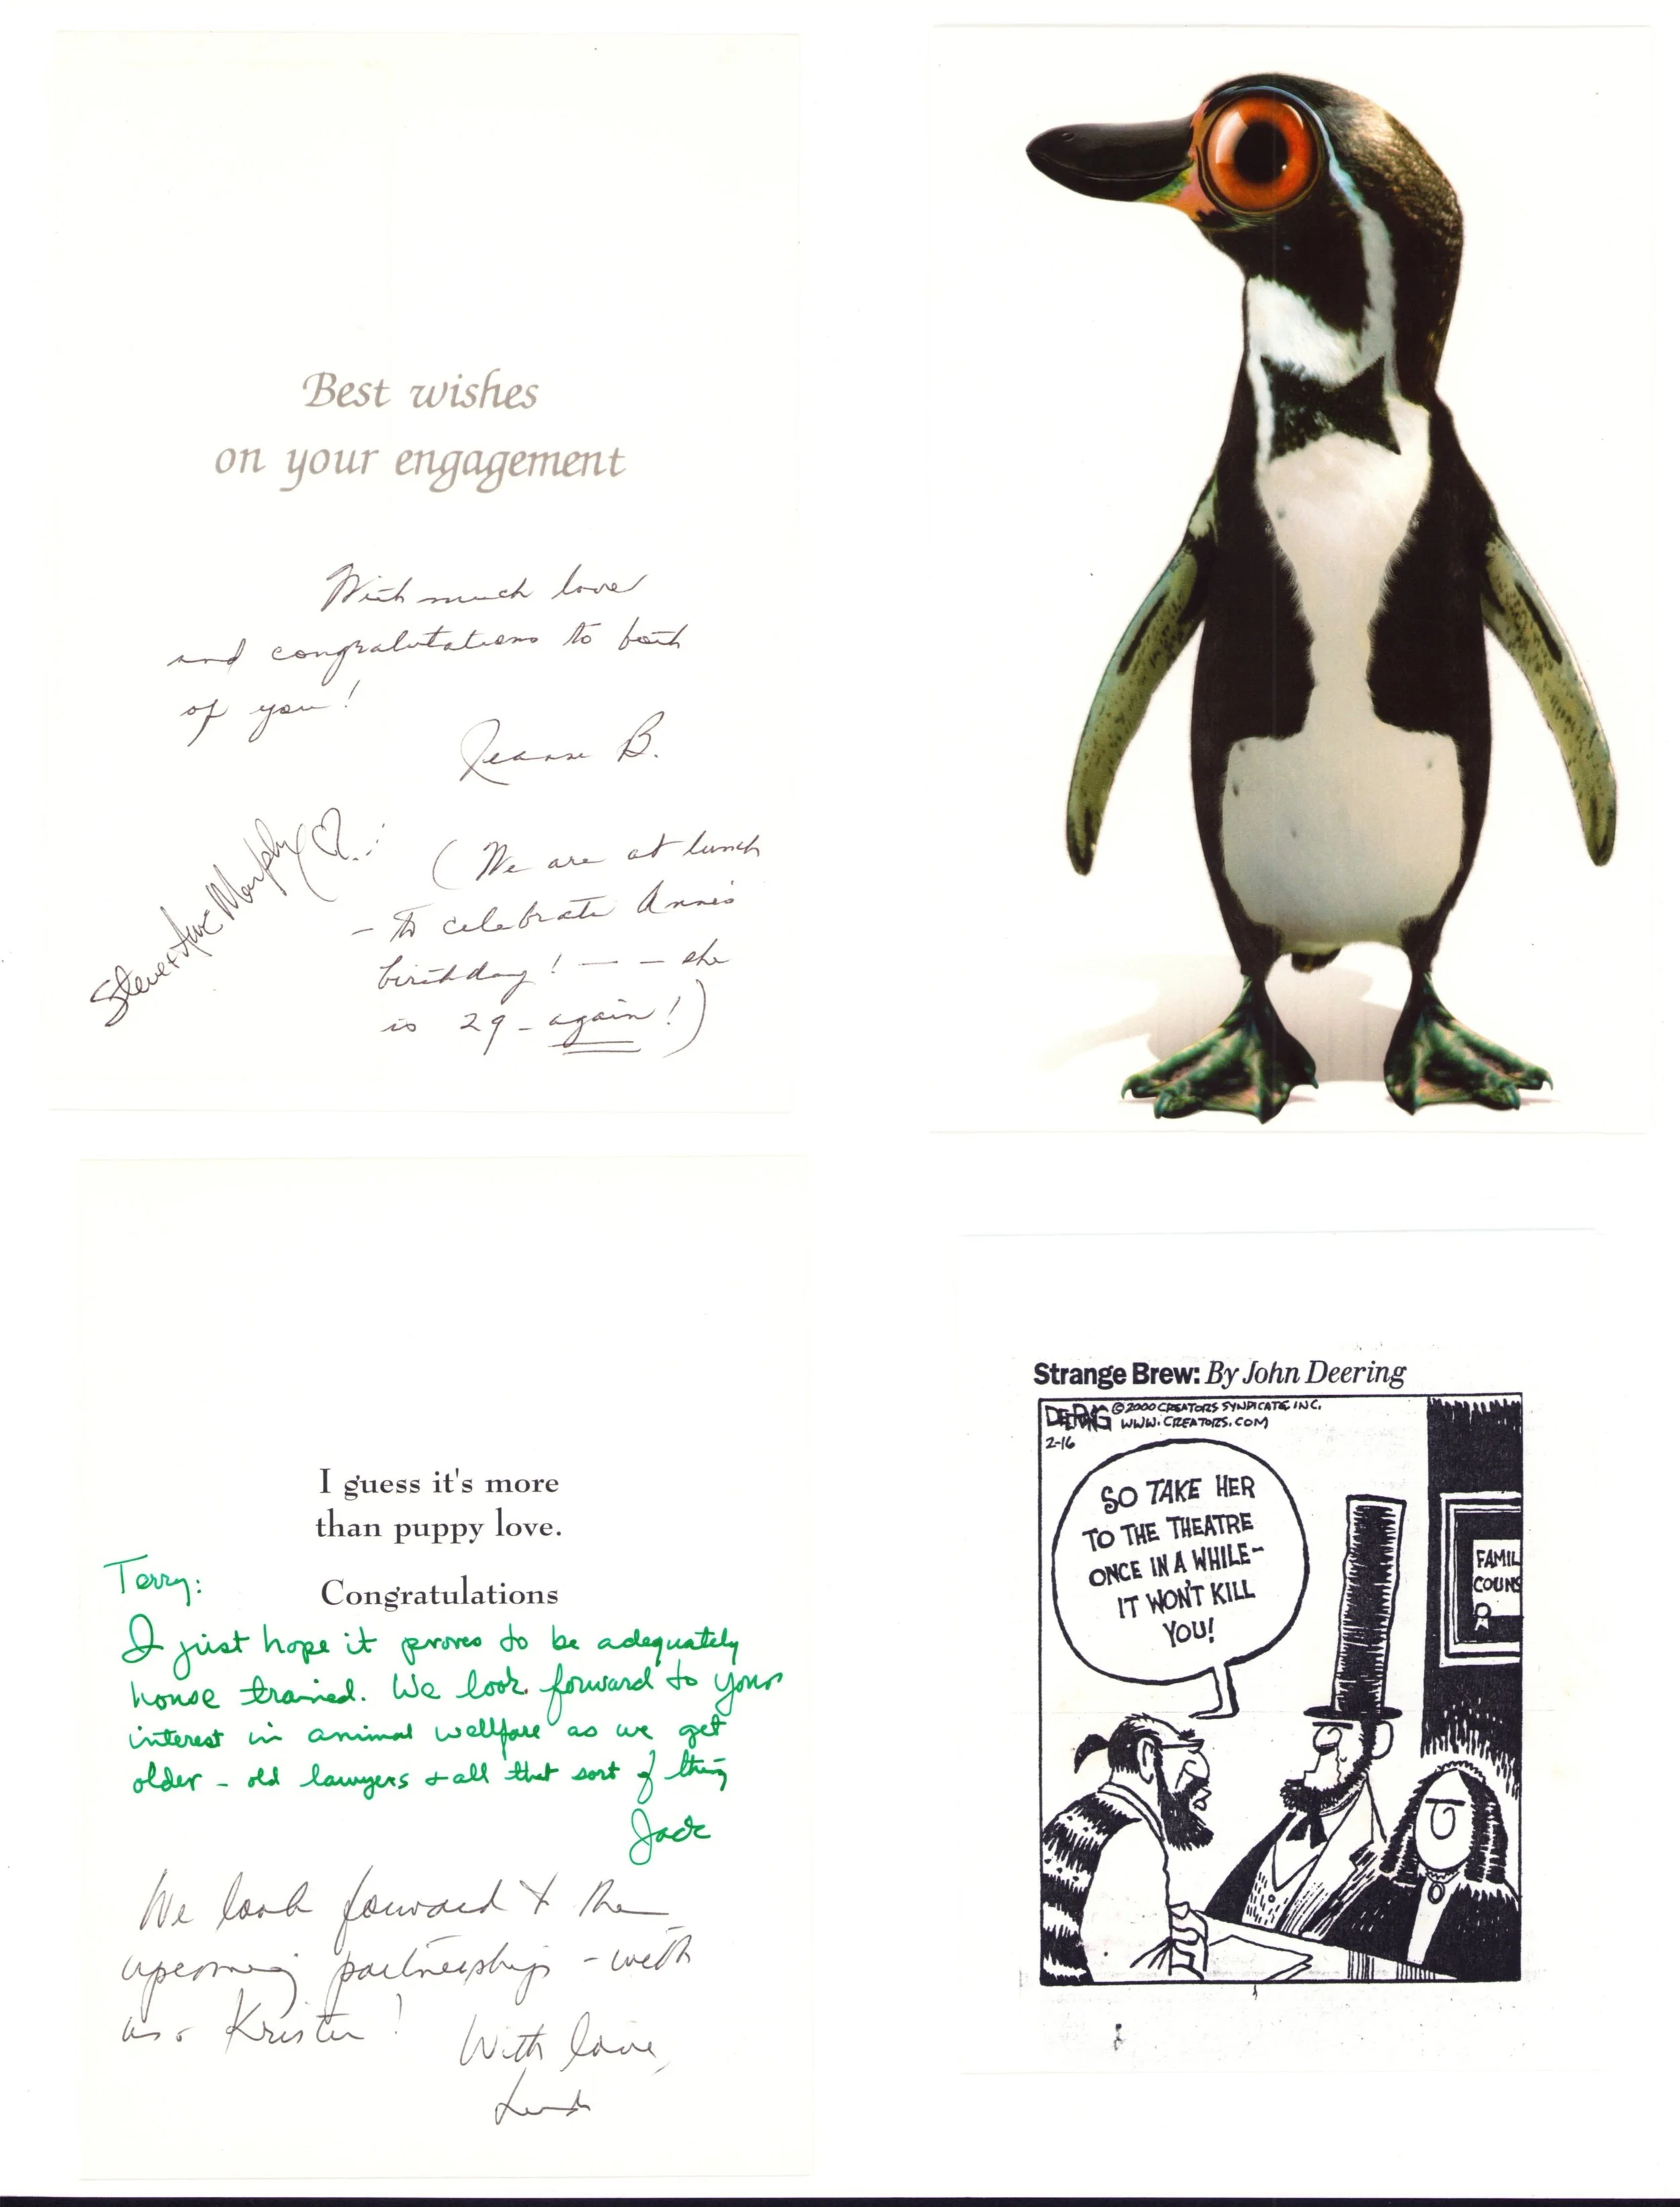 Best wishes
on your engagement
With much love
and congratulations to both
of you!
Jeanne B.
Steve + Anne Murphy
(We are at lunch
- to celebrate Anne's
birthday! - - she
is 29 - again!)
I guess it's more
than puppy love.
Congratulations
Terry:
I just hope it proves to be adequately
house trained. We look forward to your
interest in animal wellfare as we get
older - old lawyers + all that sort of thing
Jack
We look forward to the
upcoming partnership - with
us & Kristen!
With love,
Strange Brew: By John Deering
DEERING ©2000 CREATORS SYNDICATE, INC.
WWW.CREATORS.COM
2-16
SO TAKE HER
TO THE THEATRE
ONCE IN A WHILE-
IT WON'T KILL
YOU!
FAMIL
COUNS